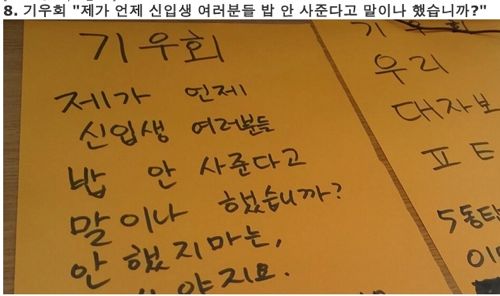 8. 기우회 "제가 언제 신입생 여러분들 밥 안 사준다고 말이나 했습니까?"
기우회
제가 언제
신입생 여러분들
밥 안 사준다고
말이나 했습니까?
안 했지마는,
기우회
우리
대자보
프
5동